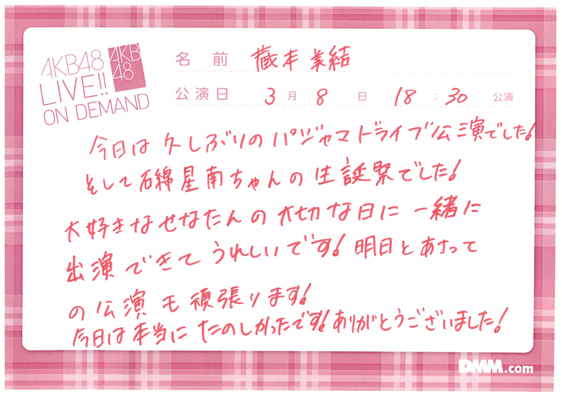 AKB48
LIVE!!
ON DEMAND
AKB
48
名前 蔵本美結
公演日 3月8日 18:30 公演
今日は久しぶりのパジャマドライブ公演でした!
そして石綿星南ちゃんの生誕祭でした!
大好きなせなたんの大切な日に一緒に
出演できてうれしいです!明日とあさって
の公演も頑張ります!
今日は本当にたのしかったです!ありがとうございました!
DMM.com